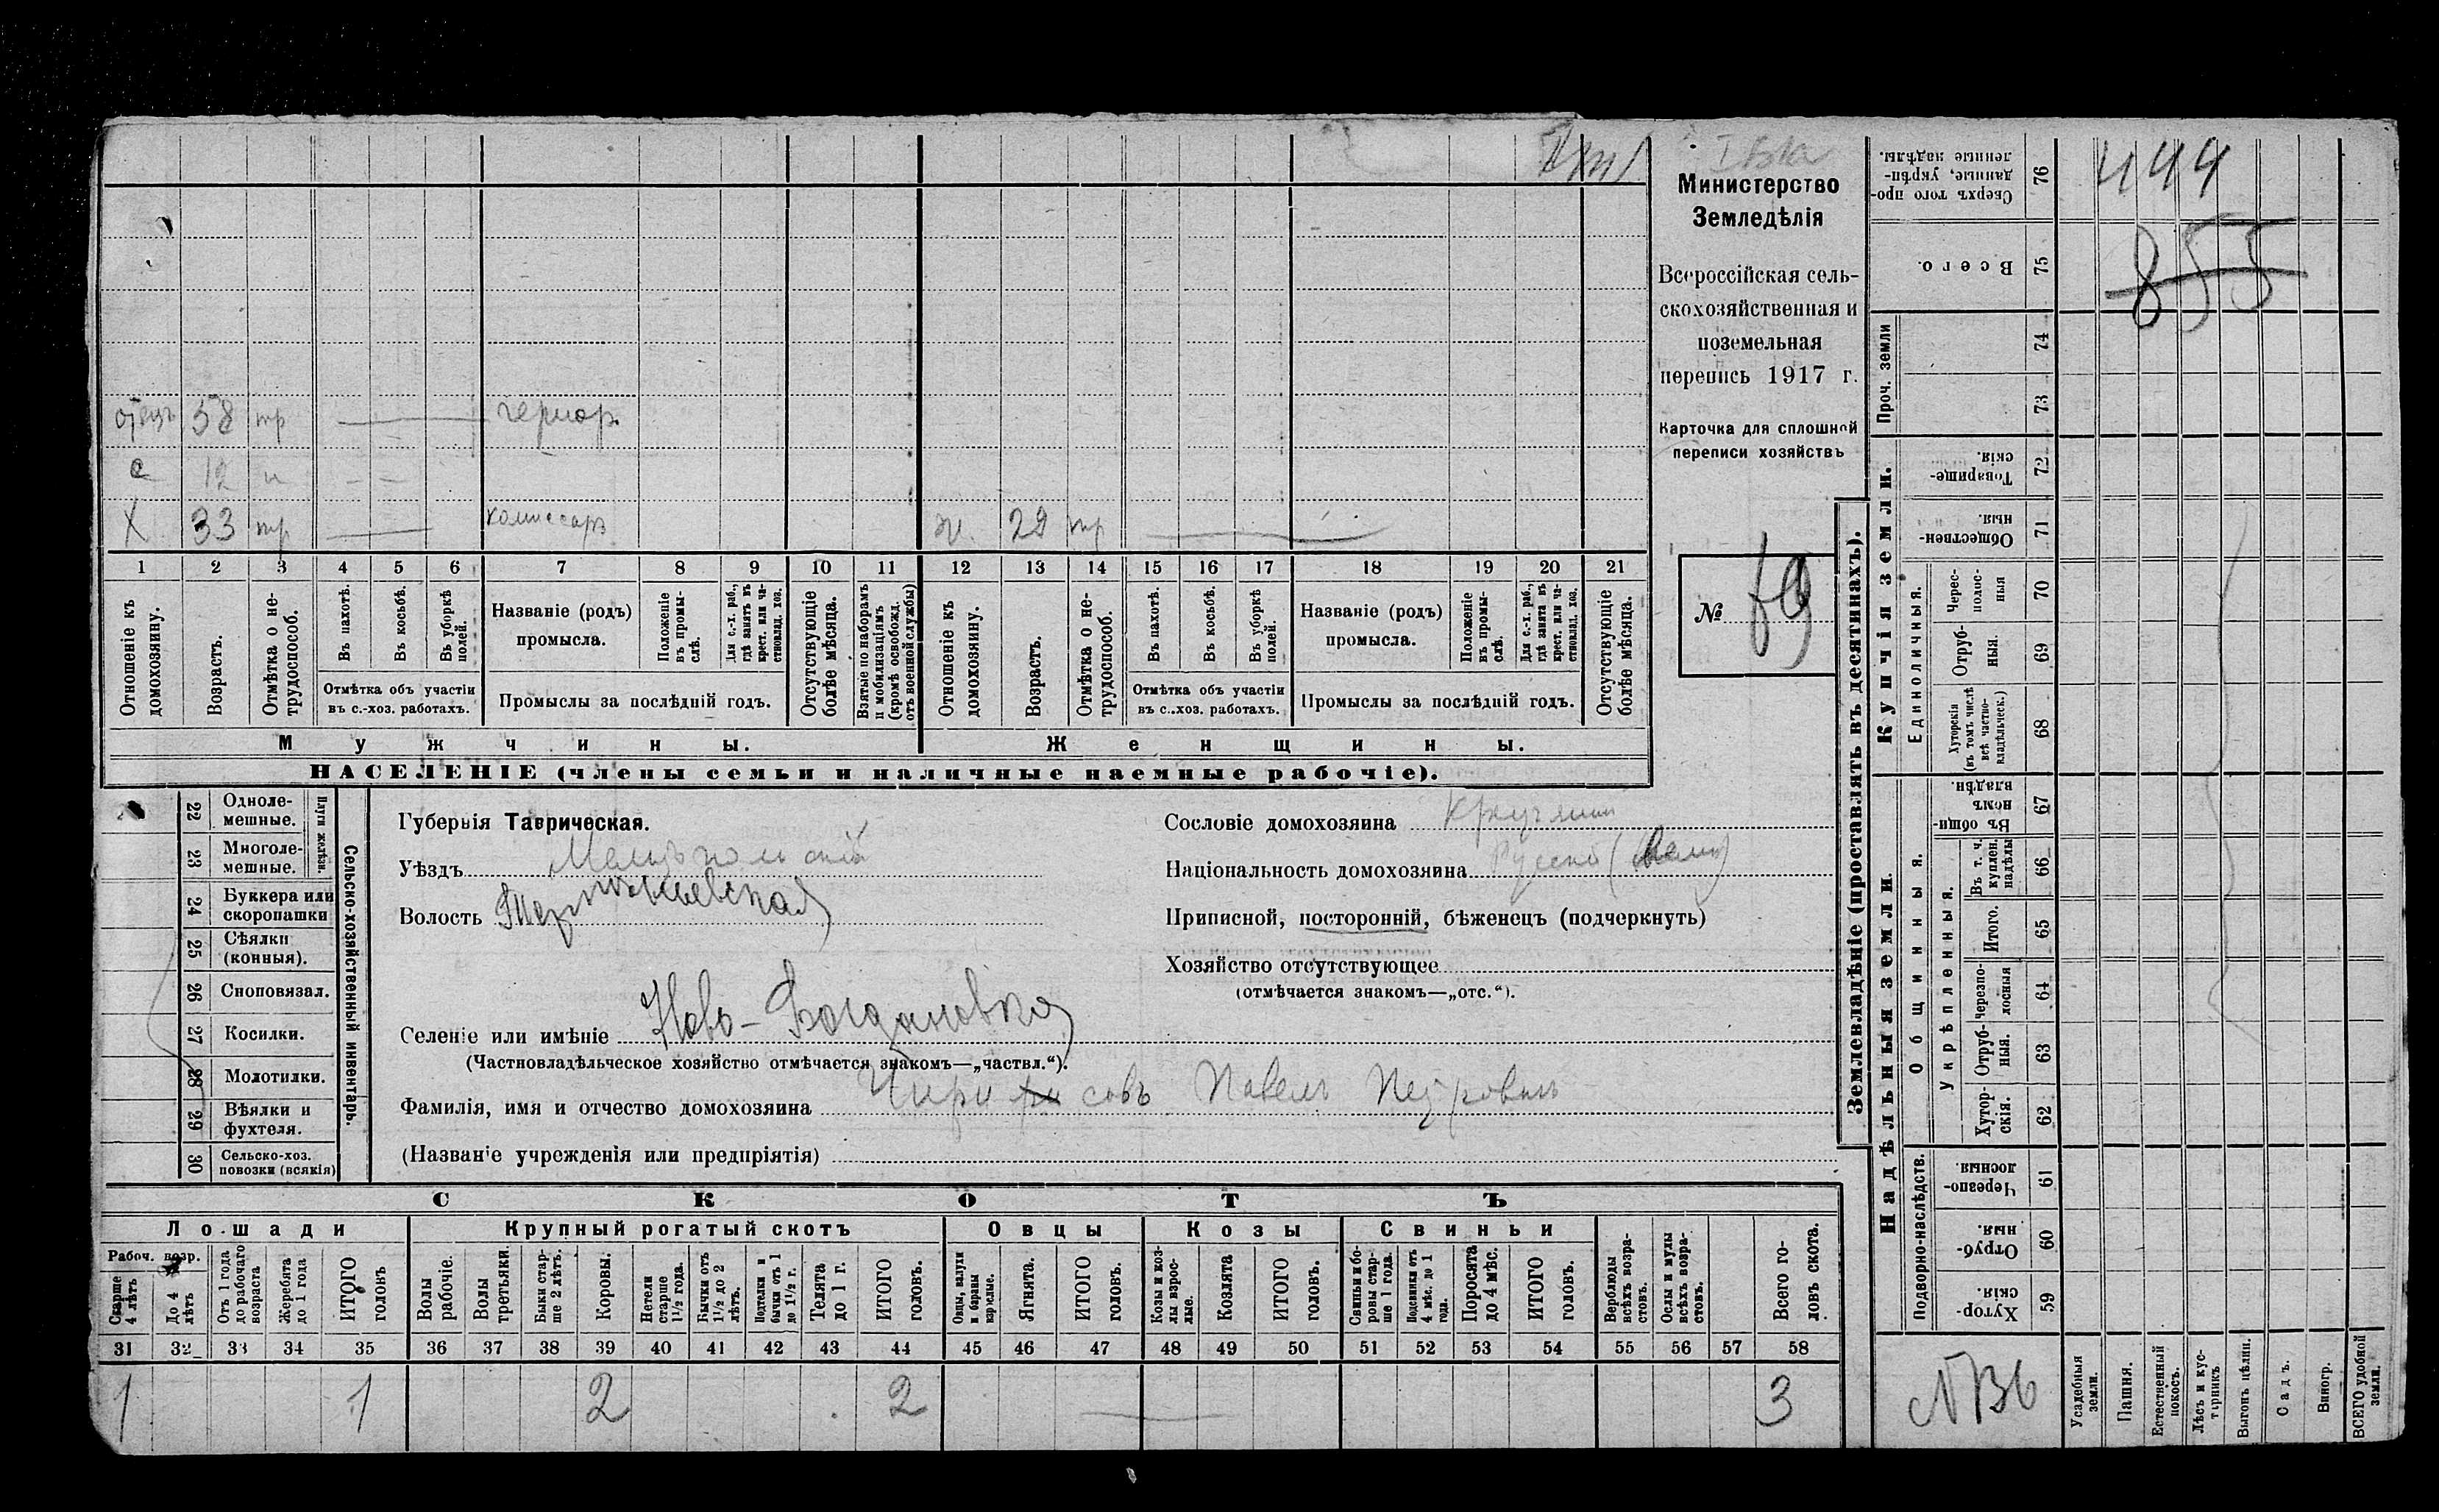 Министерство
Земледѣлія
Всероссійская сель-
скохозяйственная и
поземельная
перепись 1917 г.
Карточка для сплошной
переписи хозяйствъ
№
отецъ 58 тр
с 12 н
X 33 тр комиссаръ ж. 29 тр
1 2 3 4 5 6 7 8 9 10 11 12 13 14 15 16 17 18 19 20 21
Отношеніе къ домохозяину.
Возрастъ.
Отмѣтка о не-трудоспособ.
Въ пахотѣ.
Въ косьбѣ.
Въ уборкѣ полей.
Отмѣтка объ участіи въ с.-хоз. работахъ.
Названіе (родъ) промысла.
Положеніе въ промы-слѣ.
Для с.-х. раб., гдѣ занятъ въ крест. или ча-стновлад. хоз.
Промыслы за послѣдній годъ.
Отсутствующіе болѣе мѣсяца.
Взятые по наборамъ и мобилизаціямъ (кромѣ освобожд. отъ военной службы)
Отношеніе къ домохозяину.
Возрастъ.
Отмѣтка о не-трудоспособ.
Въ пахотѣ.
Въ косьбѣ.
Въ уборкѣ полей.
Отмѣтка объ участіи въ с.-хоз. работахъ.
Названіе (родъ) промысла.
Положеніе въ промы-слѣ.
Для с.-х. раб., гдѣ занята въ крест. или ча-стновлад. хоз.
Промыслы за послѣдній годъ.
Отсутствующіе болѣе мѣсяца.
Мужчины.
Женщины.
НАСЕЛЕНІЕ (члены семьи и наличные наемные рабочіе).
22 Одноле-мешные.
23 Многоле-мешные.
Плуги желѣзн.
24 Буккера или скоропашки
25 Сѣялки (конныя).
26 Сноповязал.
27 Косилки.
28 Молотилки.
29 Вѣялки и фухтеля.
30 Сельско-хоз. повозки (всякія)
Сельско-хозяйственный инвентарь.
Губернія Таврическая.
Уѣздъ Мелитопольскій
Волость Терпѣньевская
Селеніе или имѣніе Ново-Богдановка
(Частновладѣльческое хозяйство отмѣчается знакомъ—„частвл.“).
Фамилія, имя и отчество домохозяина Павелъ Петровичъ
(Названіе учрежденія или предпріятія)
Сословіе домохозяина
Національность домохозяина Русскій
Приписной, посторонній, бѣженецъ (подчеркнуть)
Хозяйство отсутствующее
(отмѣчается знакомъ—„отс.“).
СКОТЪ
Лошади Крупный рогатый скотъ Овцы Козы Свиньи
Рабоч. возр.
Старше 4 лѣтъ
До 4 лѣтъ
Отъ 1 года до рабочаго возраста
Жеребята до 1 года
ИТОГО головъ
Волы рабочіе.
Волы третьяки.
Быки стар-ше 2 лѣтъ.
Коровы.
Нетели старше 1½ года.
Бычки отъ 1½ до 2 лѣтъ.
Подтелки и бычки отъ 1 до 1½ г.
Телята до 1 г.
ИТОГО головъ.
Овцы, валухи и бараны взрослые.
Ягнята.
ИТОГО головъ.
Козы и коз-лы взрос-лые.
Козлята
ИТОГО головъ.
Свиньи и бо-ровы стар-ше 1 года.
Подсвинки отъ 4 мѣс. до 1 года.
Поросята до 4 мѣс.
ИТОГО головъ.
Верблюды всѣхъ возра-стовъ.
Ослы и мулы всѣхъ возра-стовъ.
Всего го-ловъ скота.
31 32 33 34 35 36 37 38 39 40 41 42 43 44 45 46 47 48 49 50 51 52 53 54 55 56 57 58
1 1 2 2 3
Землевладѣніе (проставлять въ десятинахъ).
Купчія земли.
Проч. земли
Единоличныя.
Надѣльныя земли.
Общинныя.
Укрѣпленныя.
Подворно-наслѣдств.
Сверхъ того про-данные, укрѣп-ленные надѣлы. 76 444
Всего. 75 855
74
73
Товарище-скія. 72
Обществен-ныя. 71
Черес-полос-ныя 70
Отруб-ныя. 69
Хуторскія (въ томъ числѣ всѣ частно-владѣльческ.) 68
Въ общин-номъ владѣн. 67
Въ т. ч. куплен. надѣлы 66
Итого. 65
Черезпо-лосныя 64
Отруб-ныя. 63
Хутор-скія. 62
Черезпо-лосныя. 61
Отруб-ныя. 60
Хутор-скія. 59
Усадебныя земли.
Пашня.
Естественный покосъ.
Лѣсъ и кус-тарникъ
Выгонъ цѣлин.
Садъ.
Виногр.
ВСЕГО удобной земли.